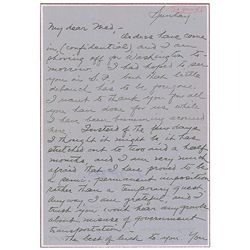 Sunday
My dear Mac -
Orders have come
in (confidential) and I am
shoving off for Washington to-
morrow. I had hoped to see
you in S.F., but that little
debauch has to be foregone.
I want to thank you for all
you have done for us while
I have been bumming around
here. Instead of the few days
I thought it might be, it has
stretched out to two and a half
months, and I am very much
afraid that I have proved to be
a semi-permanent imposition
rather than a temporary guest.
Anyway I am grateful, and I
trust you won't hear any
about misuse of government
transportation -
The best of luck to you. You